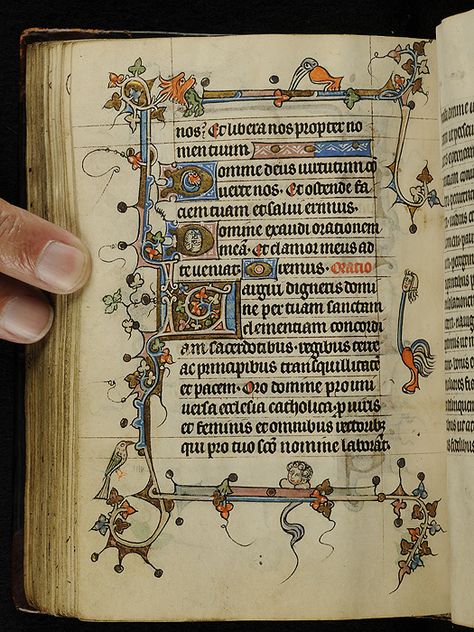 nos? Et libera nos propter no
men tuum
Domine deus virtutum cō
verte nos. Et ostende fa
ciem tuam et salvi erimus.
Domine exaudi orationem
meā. Et clamor meus ad
te veniat. Oremus. Oratio
Largiri digneris domi
ne per tuam sanctam
clementiam concordi
am sacerdotibus. regibus terre
ac principibus transquillitatē
et pacem. Oro domine pro uni
versa ecclesia catholica. p viris
et feminis et omnibus rectoribus
qui pro tuo scō nomine laborāt.